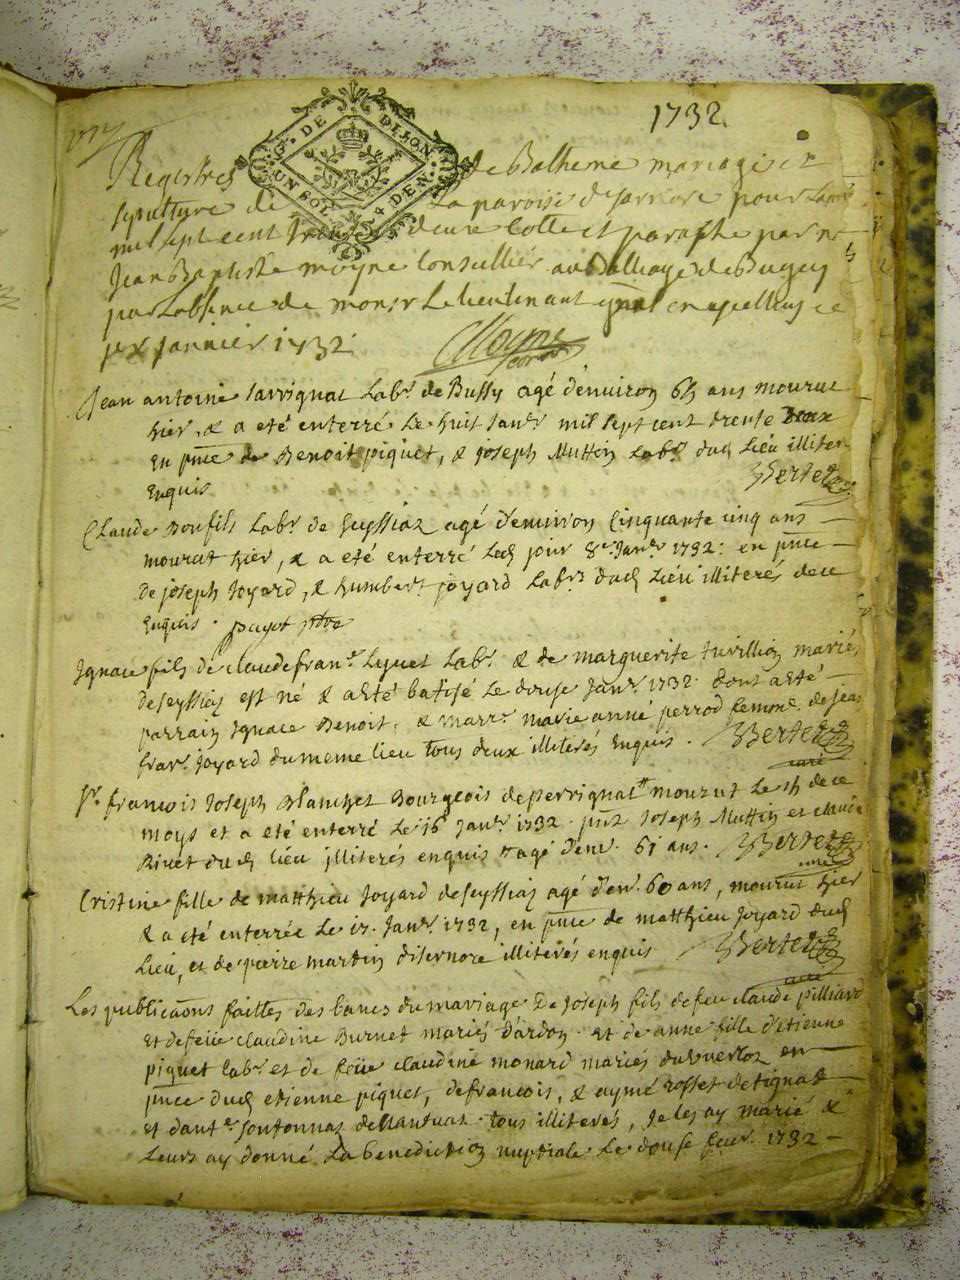 1732
G. DE DIJON
UN SOL 24 DEN.
Registres de Batheme mariage et
sepulture de La paroise de pour
mil sept cent deux Cotte et paraphe par
Jean Baptiste moyne Conseillier au Balliage de Bugey
par Labsence de monsr Le lieutenant gnal en ce
janvier 1732
Moyne
Jean antoine Savvignat Labr. de Bussy agé d'enuiron 65 ans mourut
hier, & a eté enterré Le huit Janvr mil sept cent trente deux
En pnce de Benoit piquet, & joseph Muttin Labrs dud Lieu illiter
Enquis Bertet
Claude Bonfils Labr de Seyssiaz agé d'enuiron Cinquante cinq ans
mourut hier, & a eté enterré Led jour 8e Janvr 1732: en pnce
De joseph Joyard, & humbert joyard Labrs dud Lieu illiterés de ce
Enquis. payot ptre
Ignace fils de claude fran. Lyuet Labr. & de marguerite tuvillion mariés
de seyssiaz est né & a eté batisé Le douse Janvr. 1732. dont a eté
parrain Ignace Benoit, & marr. marie anne perrod femme de jean
franc. Joyard du meme lieu tous deux illiterés Enquis. Bertet
curé
Sr. francois Joseph Blanchet Bourgeois de perrignat mourut Le 15 de ce
moys et a eté enterré Le 16 Janvr 1732. pnt Joseph Muttin et claude
Rivet dud lieu illiterés enquis agé d'env. 61 ans. Bertet
curé
Cristine fille de matthieu Joyard de Seyssiaz agé d'env. 60 ans, mourut hier
& a eté enterrée Le 17. Janvr. 1732, en pnce de matthieu Joyard dud
Lieu, et de pierre martin d'isernore illiterés enquis Bertet
curé
Les publicaons faittes des bancs du mariage De Joseph fils de feu claude pilliard
et de feüe claudine Burnet mariés d'ardon. et de anne fille d'Etienne
piquet labr et de feüe claudine monard mariés du en
pnce dud etienne piquet, de francois, & aymé rosset de tignat
et d'ant. sontonnas de Nantuat. tous illiterés, Je les ay marié &
Leurs ay donné La benediction nuptiale Le douse feur. 1732